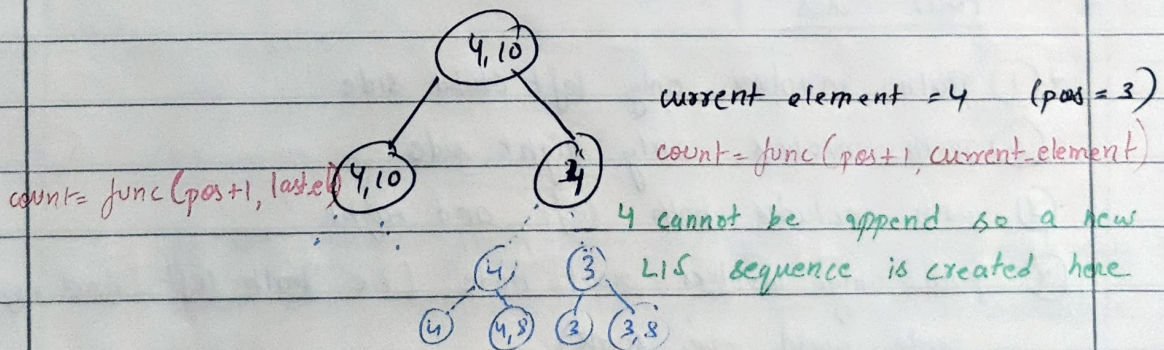 4,10
current element = 4 (pos = 3)
count = func(pos+1, current_element)
count= func(pos+1, lastel)
4,10
4
4 cannot be append so a new
LIS sequence is created here
4
3
4
4,8
3
3,8